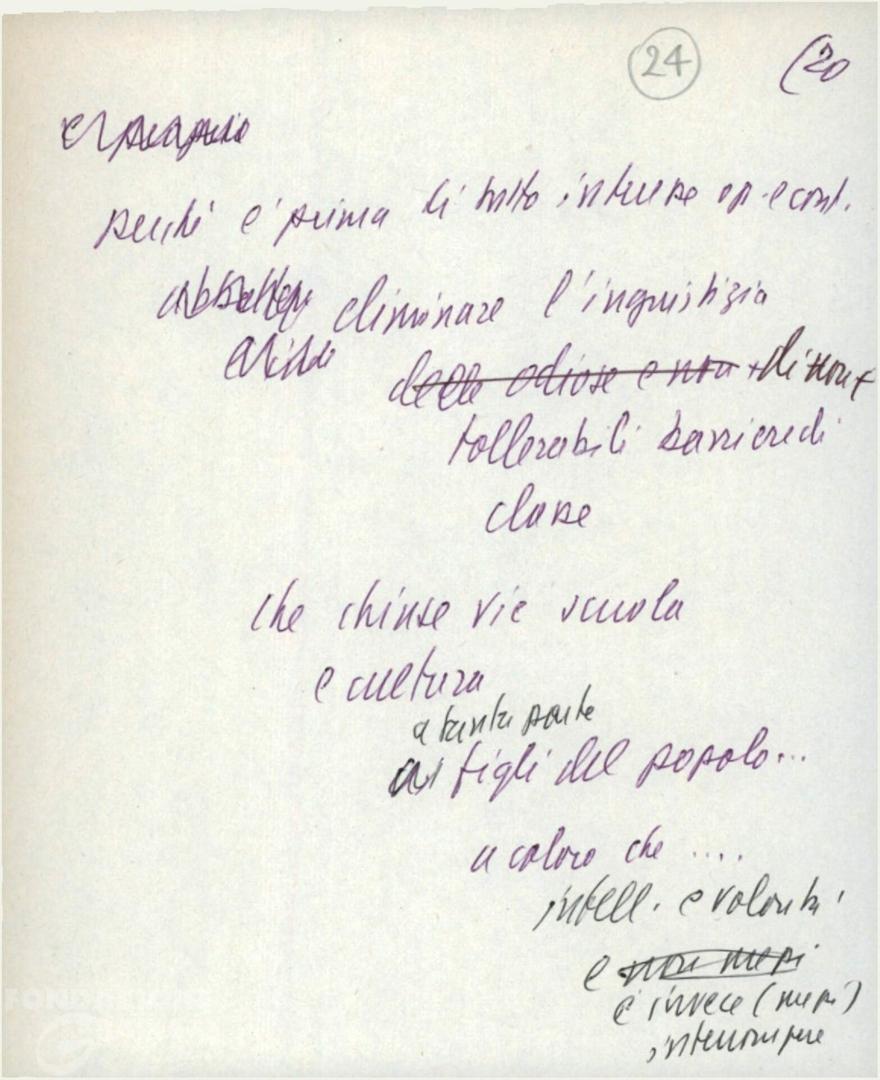 24 (20
perché è prima di tutto interesse op. e cont.
eliminare l'ingiustizia
delle odiose e non + di non +
tollerabili barriere di
classe
che chiuse vie scuola
e cultura
a tanta parte
ai figli del popolo...
a coloro che ....
intell. e volontà
e non mezzi
e invece (mezzi)
interrompere
FONDAZIONE